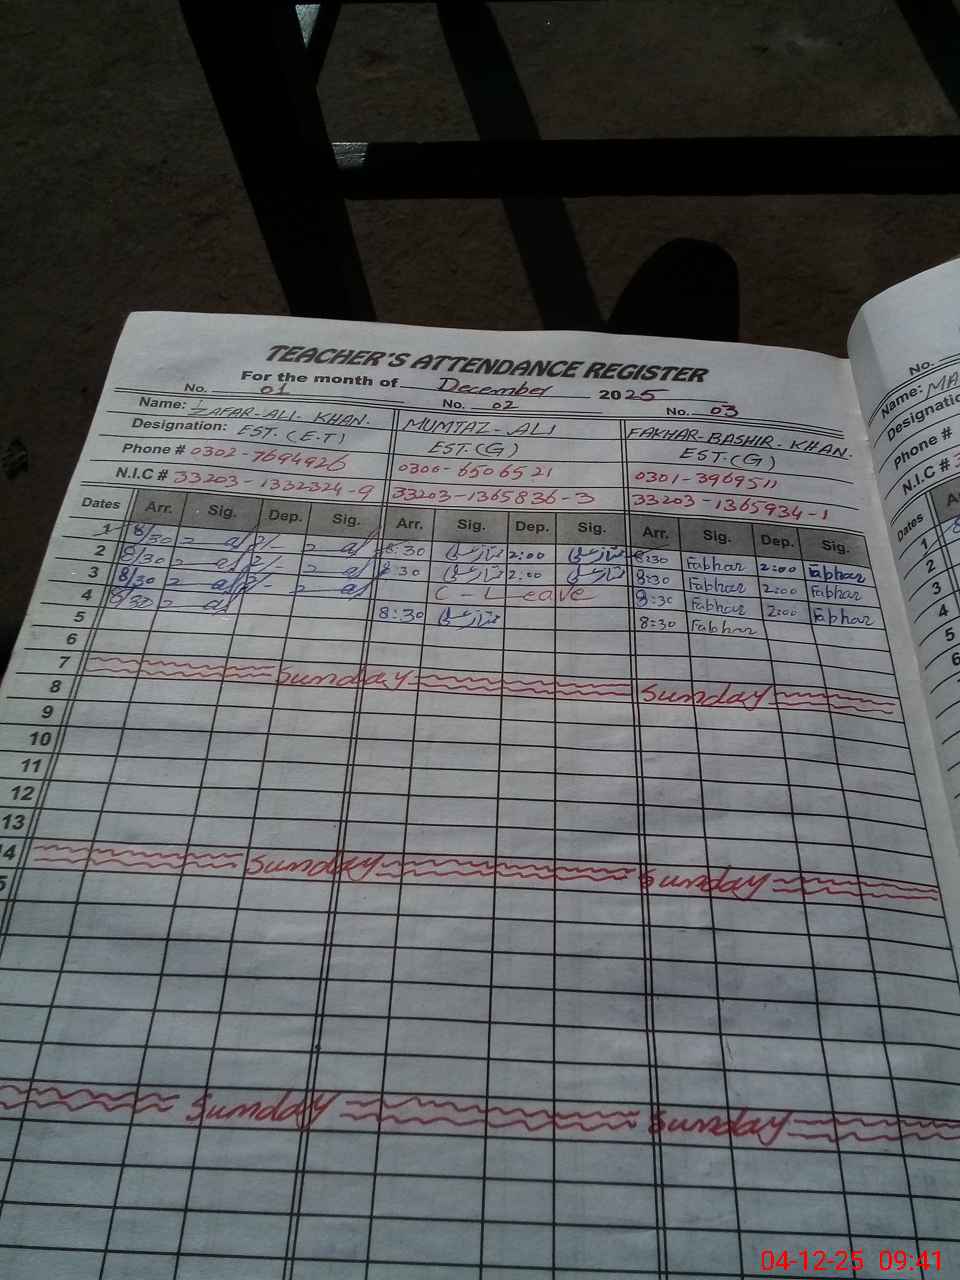 TEACHER'S ATTENDANCE REGISTER
For the month of December 2025
No. 01 No. 02 No. 03
Name: ZAFAR-ALI-KHAN. MUMTAZ-ALI FAKHAR-BASHIR-KHAN.
Designation: EST.(E.T) EST.(G) EST.(G)
Phone # 0302-7694926 0306-6506521 0301-3969511
N.I.C # 33203-1332324-9 33203-1365836-3 33203-1365934-1
Dates Arr. Sig. Dep. Sig. Arr. Sig. Dep. Sig. Arr. Sig. Dep. Sig.
1 8/30 2/- 8:30 2:00 8:30 Fabhar 2:00 Fabhar
2 8/30 2/- 8:30 2:00 8:30 Fabhar 2:00 Fabhar
3 8/30 2/- C-Leave 8:30 Fabhar 2:00 Fabhar
4 8/30 8:30 8:30 Fabhar
5
6
7 Sunday Sunday
8
9
10
11
12
13
14 Sunday Sunday
Sunday Sunday
No.
Name: MA
Designatio
Phone #
N.I.C # 3
Dates
1
2
3
4
5
6
04-12-25 09:41